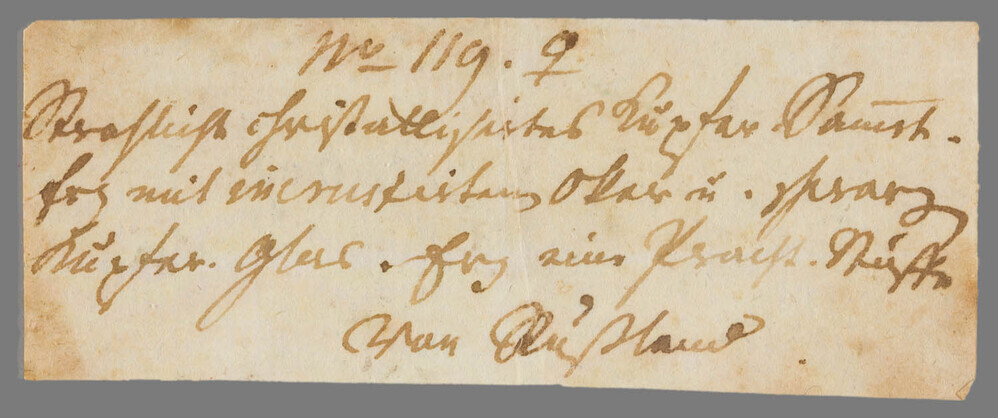 No 119. ♀
Strahlicht christallisirtes Kupfer Sammt-
Erz mit incrustirtem Oker u. schwarz
Kupfer-Glas-Erz eine Pracht-Stuffe
von Rußland